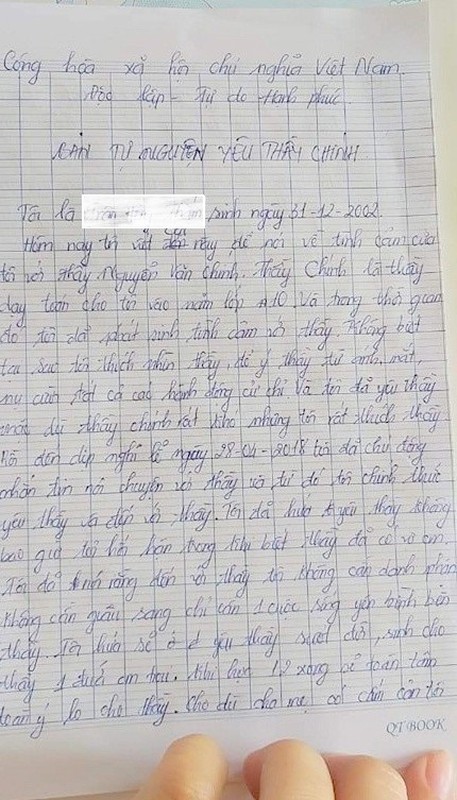 Cộng hòa xã hội chủ nghĩa Việt Nam.
Độc lập - Tự do Hạnh phúc.
BẢN TỰ NGUYỆN YÊU THẦY CHÍNH.
Tôi là sinh ngày 31-12-2002
Hôm nay tôi viết đơn này để nói về tình cảm của
tôi với thầy Nguyễn Văn Chính. Thầy Chính là thầy
dạy toán cho tôi vào năm lớp 10. Và trong thời gian
đó tôi đã phát sinh tình cảm với thầy. Không biết
tại sao tôi thích nhìn thầy, để ý thầy từ ánh mắt,
nụ cười tất cả các hành động cử chỉ. Và tôi đã yêu thầy
mặc dù thầy chính rất khó nhưng tôi rất thích thầy
Rồi đến dịp nghỉ lễ ngày 28-04-2018 tôi đã chủ động
nhắn tin nói chuyện với thầy và từ đó tôi chính thức
yêu thầy và đến với thầy. Tôi đã hứa yêu thầy không
bao giờ tôi hối hận trong khi biết thầy đã có vợ con.
Tôi đã rằng đến với thầy tôi không cần danh phận
không cần giàu sang chỉ cần 1 cuộc sống yên bình bên
thầy. Tôi hứa sẽ ở yêu thầy suốt đời, sinh cho
thầy 1 đứa con trai. Khi học 12 xong sẽ toàn tâm
toàn ý lo cho thầy. Cho dù cha mẹ có cấm cản tôi
QT BOOK